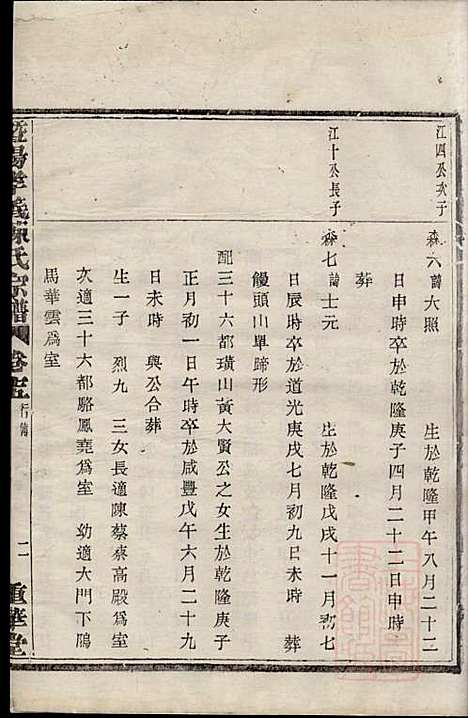 江四公次子
森六 諱大照 生於乾隆甲午八月二十二
日申時卒於乾隆庚子四月二十二日申時
葬
江十公長子
森七 諱士元 生於乾隆戊戌十一月初七
日辰時卒於道光庚戌七月初九日未時 葬
饅頭山單蹄形
配三十六都璜山黃大賢公之女生於乾隆庚子
正月初一日午時卒於咸豐戊午六月二十九
日未時 與公合葬
生一子 烈九 三女長適陳蔡寮高殿爲室
次適三十六都駱鳳堯爲室 幼適大門下隝
馬華雲爲室
暨陽孝義陳氏宗譜 卷五 行傳 二 重華堂